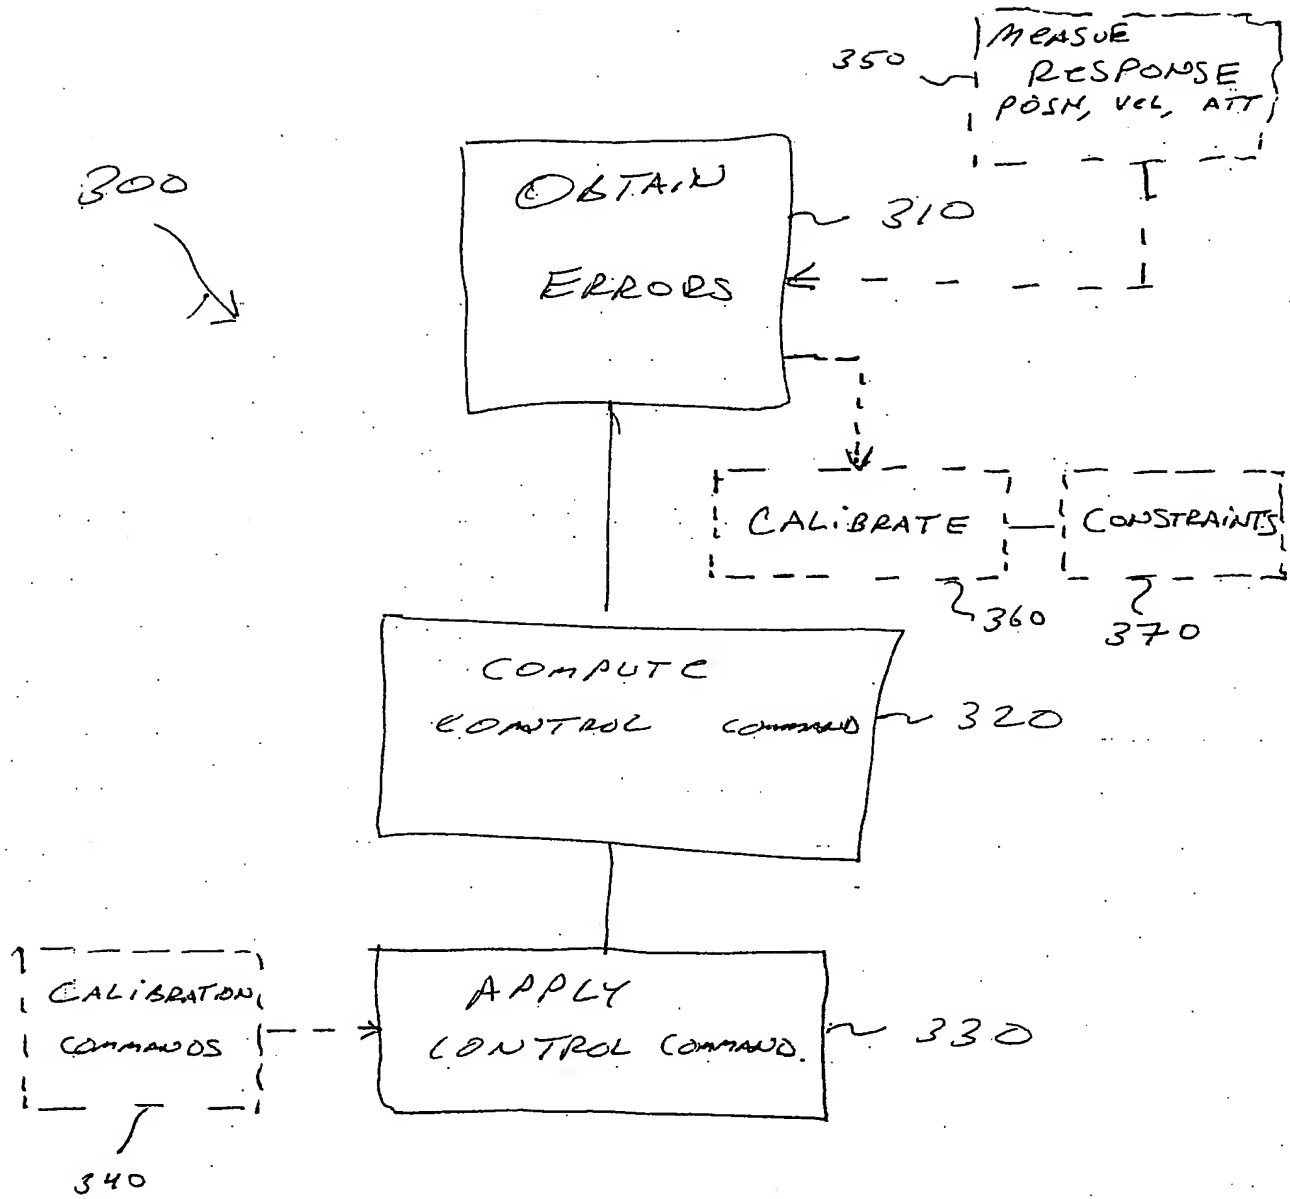 MEASUE
RESPONSE
POSN, VEL, ATT
350
300
OBTAIN
ERRORS
310
CALIBRATE
CONSTRAINTS
360
370
COMPUTE
CONTROL COMMAND
320
CALIBRATION
COMMANDS
340
APPLY
CONTROL COMMAND.
330